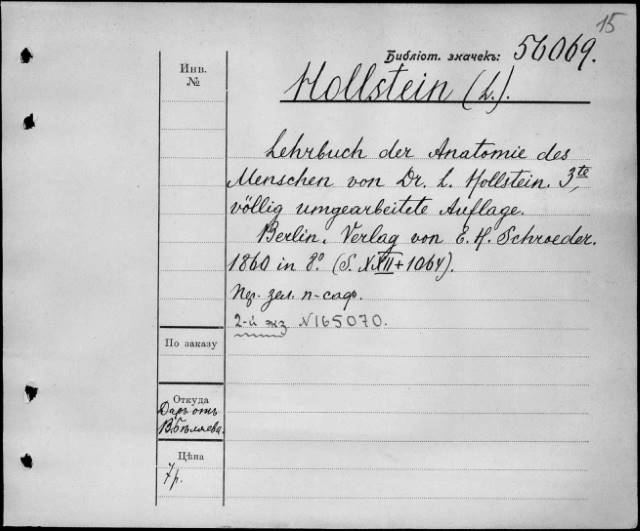 15
Библіот. значекъ: 56069.
Инв.
№
Hollstein (L.).
Lehrbuch der Anatomie des
Menschen von Dr. L. Hollstein. 3te,
völlig umgearbeitete Auflage.
Berlin. Verlag von E. H. Schroeder.
1860 in 8º. (S. XXII+1064).
Пер. зел. п-саф.
2-й экз N165070.
По заказу
Откуда
Даръ отъ
В. Бѣляева.
Цѣна
7 р.